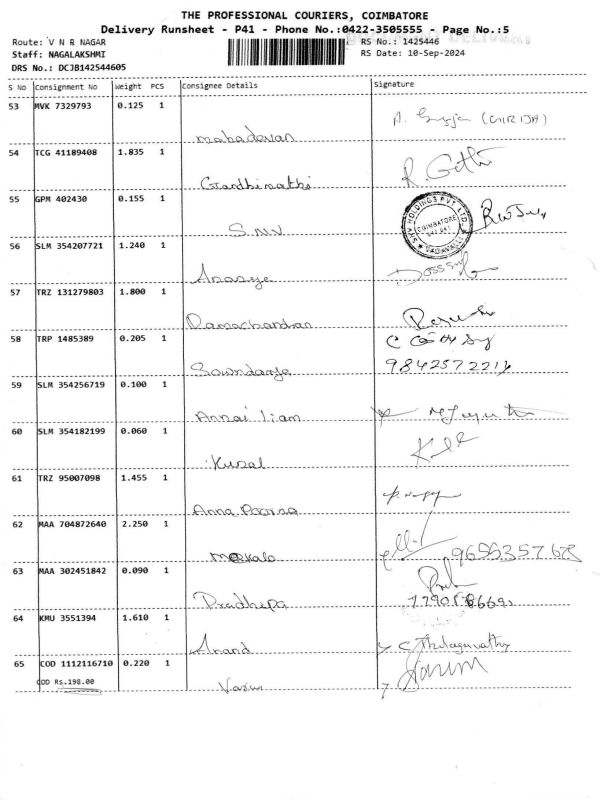 THE PROFESSIONAL COURIERS, COIMBATORE
Delivery Runsheet - P41 - Phone No.:0422-3505555 - Page No.:5
Route: V N R NAGAR RS No.: 1425446
Staff: NAGALAKSHMI RS Date: 10-Sep-2024
DRS No.: DCJB142544605
S No Consignment No Weight PCS Consignee Details Signature
53 MVK 7329793 0.125 1
(GIRIJA)
mahadevan
54 TCG 41189408 1.835 1
R. Geetha
Gandhimathi
55 GPM 402430 0.155 1
SKV HOLDINGS PVT LTD
COIMBATORE
641 041
VADAVALLI
S.N.V
56 SLM 354207721 1.240 1
57 TRZ 131279803 1.800 1
Ramachandran
58 TRP 1485389 0.205 1
Sowndarya
59 SLM 354256719 0.100 1
Annai Liam
60 SLM 354182199 0.060 1
Kural
61 TRZ 95007098 1.455 1
Anna Poorna
62 MAA 704872640 2.250 1
Mekala
63 MAA 302451842 0.090 1
Pradhipa
64 KMU 3551394 1.610 1
C Thilagavathy
Anand
65 COD 1112116710 0.220 1
Varun
COD Rs.198.00
Varun